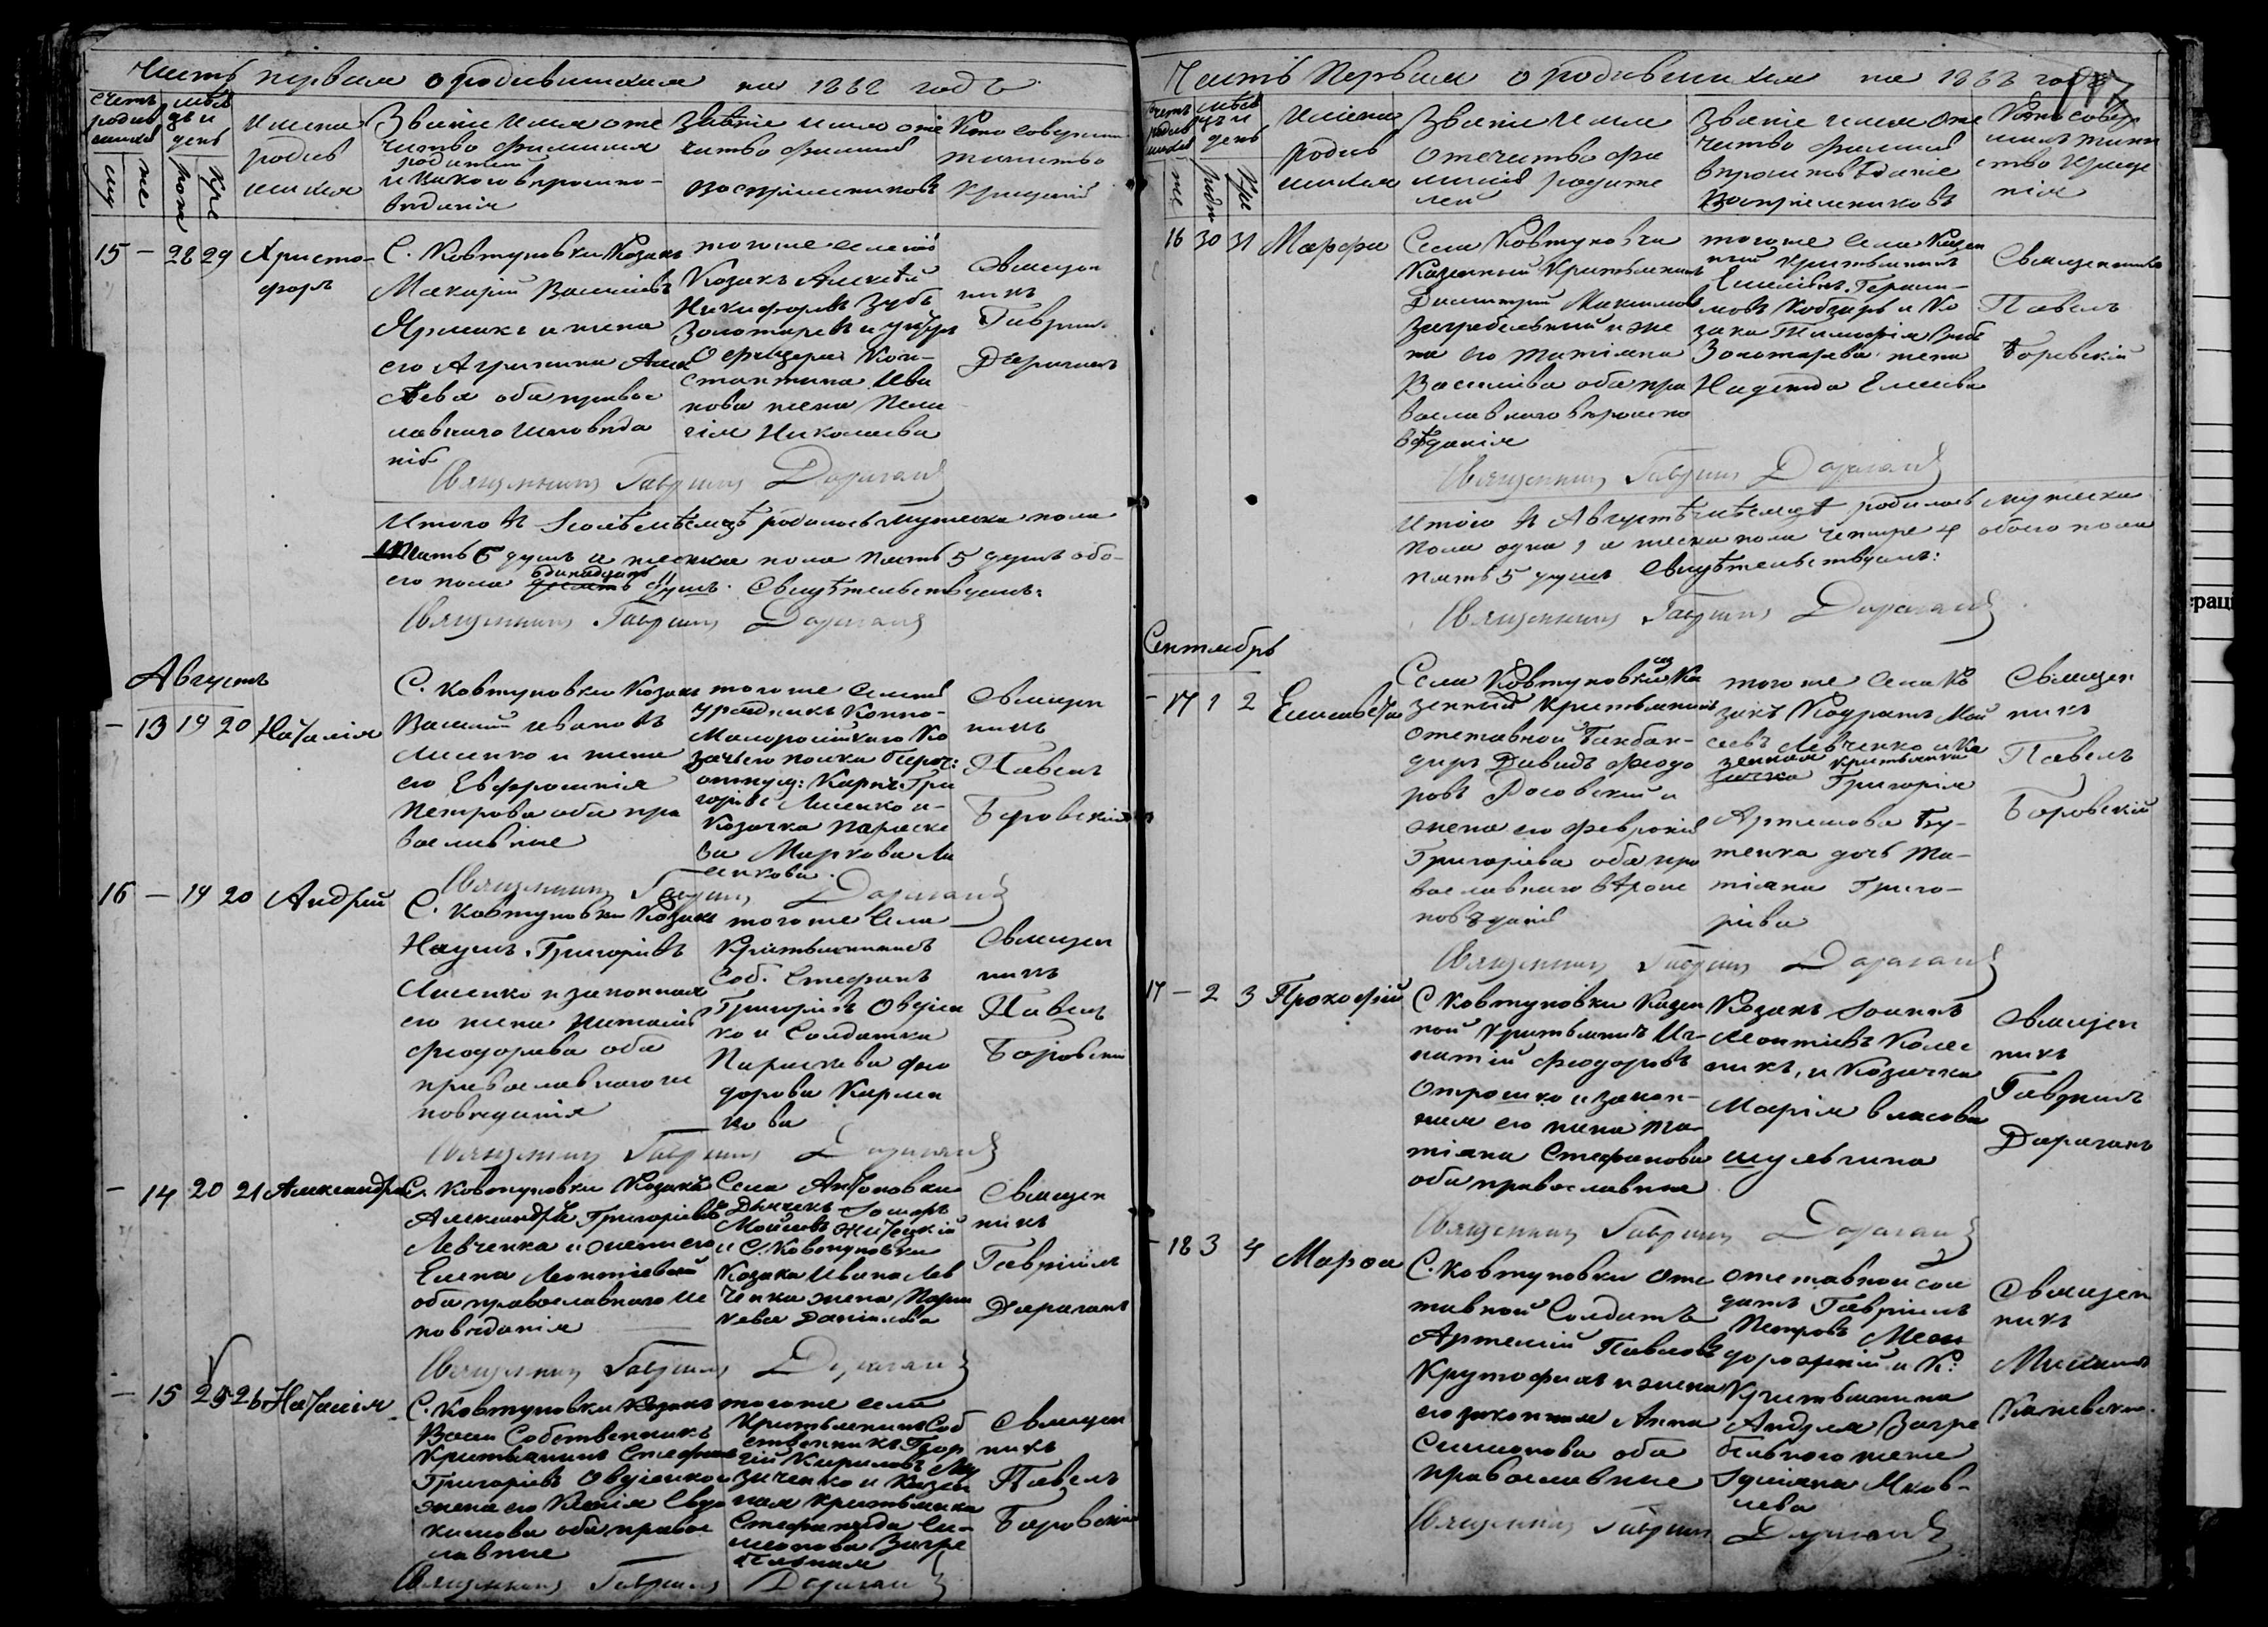 Часть первая о родившихся на 1862 годъ
счетъ родив шихся
мѣся цъ и день
му
же
рож
кре
имена родив шихся
Званіе имя оте чество фамилия родителей и какого вѣроиспо- вѣданія
Званіе имя оте чество фамилія воспріемниковъ
Кто совершалъ таинство крещенія
15 — 28 29 Христо-
форъ
С. Ковтуновки Козакъ
Макарій Васильевъ
Ярмакъ и жена
его Агрипина Алек
сѣева оба православ
лавнаго исповѣда
нія
тогоже селенія
Козакъ Алексѣй
Никифоровъ Зубъ
Золотаревъ и унтеръ
Офицера Кон-
стантина Ива
нова жена Пела
гія Николаева
Священ
никъ
Гавріилъ
Дараганъ
Священникъ Гавріилъ Дараганъ
Итого въ Іюлѣ мѣсяцѣ родилось мужеска пола
Пять 5 душъ а женска пола пять 5 душъ обо-
его пола одинадцать 11 душъ. Свидѣтельствуемъ:
Священникъ Гавріилъ Дараганъ
Августъ
— 13 19 20 Наталія
С. Ковтуновки Козакъ
Василій Ивановъ
Лисенко и жена
его Евфросинія
Петрова оба пра
вославные
тогоже селенія
урядникъ Конно-
Малоросійскаго Ко
зачьего полка
Григорьевъ Лисенко и
Козачка Параске
ва Маркова Ли
сенкова.
Священ
никъ
Павелъ
Боровскій
Священникъ Гавріилъ Дараганъ
16 — 19 20 Андрей
С. Ковтуновки Козакъ
Наумъ Григорьевъ
Лисенко и законная
его жена Наталія
Феодорова оба
православнаго ис
повѣданія
тогоже села
Крестьянинъ
Соб. Стефанъ
Григорьевъ Овсіен
ко и Солдатка
Параскева Фео
дорова Карма
кова
Священ
никъ
Павелъ
Боровскій
Священникъ Гавріилъ Дараганъ
— 14 20 21 Александра
С. Ковтуновки Козакъ
Александръ Григорьевъ
Левченко и жена его
Елена Леонтіева
оба православнаго ис
повѣданія
Села Антоновки
Дьячекъ
Моисеевъ
и С. Ковтуновки
Козака Ивана Лев
ченка жена Парас
кева Даніилова
Священ
никъ
Гавріилъ
Дараганъ
Священникъ Гавріилъ Дараганъ
— 15 25 26 Наталія
С. Ковтуновки
Собственникъ
Крестьянинъ Стефанъ
Григорьевъ Овсіенко и
жена его Ксенія Евдо
кимова оба правос
лавные
тогоже села
Крестьянинъ Соб
ственникъ Геор
гій Кириловъ
и Казен
ная крестьянка
Стефанида Си-
меонова Загре
бельная
Священ
никъ
Павелъ
Боровскій
Священникъ Гавріилъ Дараганъ
Часть Первая о родившихся на 1862 годъ
счетъ родив шихся
мѣся цъ и день
же
родж
кре
имена родив шихся
Званіе имя отечество фа милія родите лей
Званіе имя оте чество фамилія вѣроисповѣданіе воспріемниковъ
Кто совер шилъ таин ство креще нія
16 30 31 Марфа
Села Ковтуновки
Казенный Крестьянинъ
Димитрій Максимовъ
Загребельный и же
на его Татіяна
Василіева оба пра
вославнаго вѣроиспо
вѣданія
тогоже села Казен
ный Крестьянинъ
Гераси-
мовъ Кобзарь и Ко
зака Тимофія Зубъ
Золотарева жена
Надежда Елисѣева
Священникъ
Павелъ
Боровскій
Священникъ Гавріилъ Дараганъ
Итого въ Августѣ мѣсяцѣ родилось мужеска
пола одна 1 а женска пола четыре 4 обоего пола
пять 5 душъ Свидѣтельствуемъ:
Священникъ Гавріилъ Дараганъ
Сентябрь
— 17 1 2 Елисавета
Села Ковтуновки Ка
зенный Крестьянинъ
отставной
Давидъ Феодо
ровъ Росовскій и
жена его Февронія
Григоріева оба пра
вославнаго вѣроис
повѣданія
тогоже села Ко
закъ Кодратъ Мои
сеевъ Левченко и Ка
зенная крестьянка
Григорія
Артемова Бу-
тенка дочь Та-
тіяна Григо-
ріева
Священ
никъ
Павелъ
Боровскій
Священникъ Гавріилъ Дараганъ
17 — 2 3 Прокофій
С Ковтуновки Казен
ной Крестьянинъ Иг-
натій Феодоровъ
Отрошко и закон-
ная его жена Та-
тіяна Стефанова
оба православные
Козакъ Іоаннъ
Леонтіевъ Колес
никъ, и Козачка
Марія Власова
Шульгина
Священ
никъ
Гавріилъ
Дараганъ
Священникъ Гавріилъ Дараганъ
— 18 3 4 Марфа
С. Ковтуновки Отс
тавной Солдатъ
Артемій Павловъ
и жена
его законная Анна
Симонова оба
православные
отставной сол
датъ Гавріилъ
Петровъ
и К:
Крестьянина
Андрея Загре
бельного жена
Іуліяна Яков-
лева
Священ
никъ
Михаилъ
Каневскій.
Священникъ Гавріилъ Дараганъ